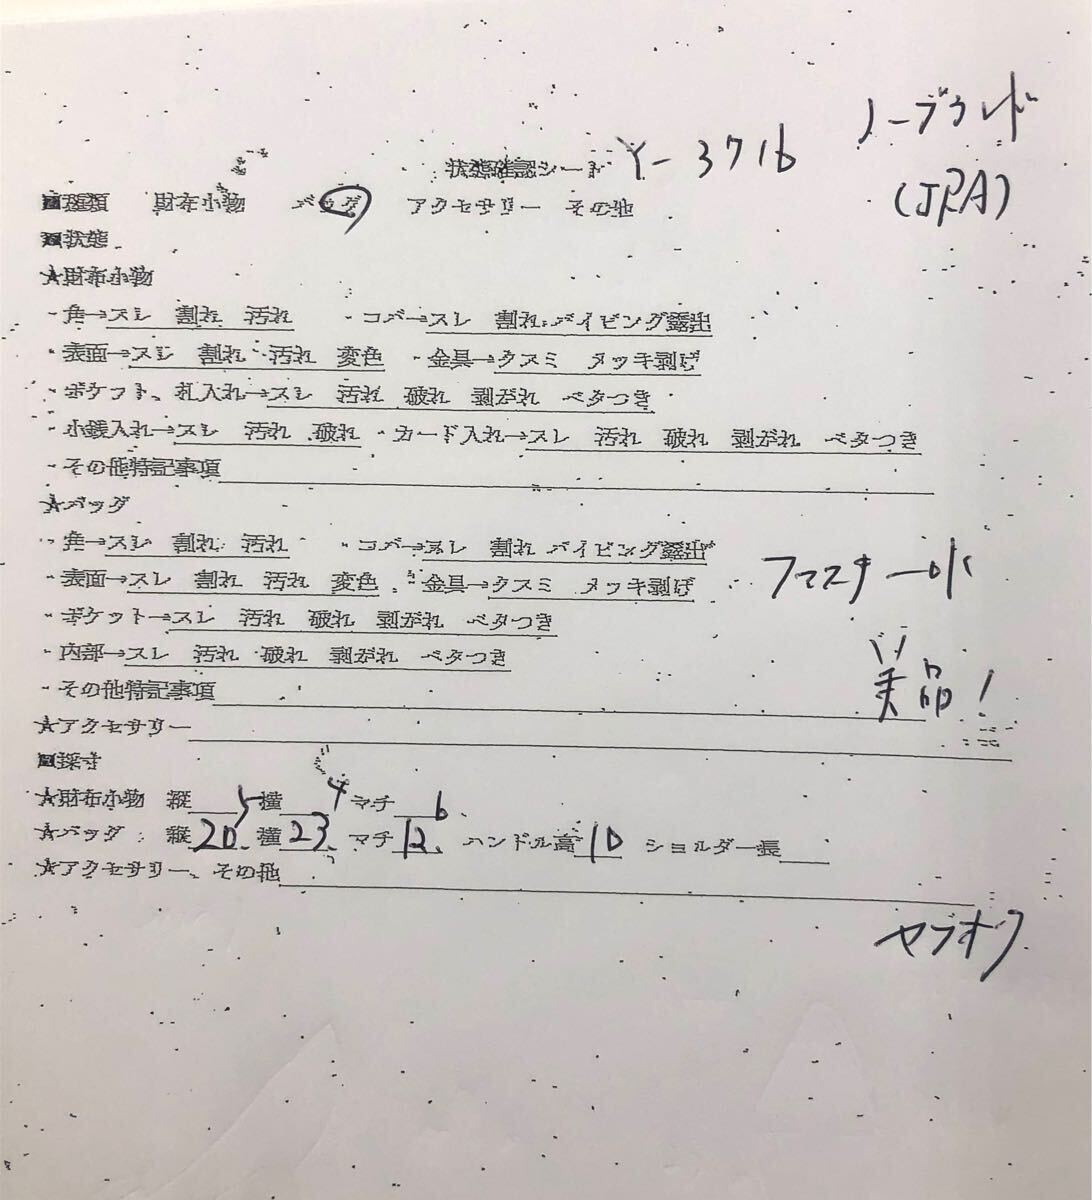 ノーブランド
状態確認シート Y-3716
(JRA)
■種類 財布小物 バッグ アクセサリー その他
■状態
★財布小物
・角→スレ 割れ 汚れ ・コバ→スレ 割れ パイピング露出
・表面→スレ 割れ 汚れ 変色 ・金具→クスミ メッキ剥げ
・ポケット、札入れ→スレ 汚れ 破れ 剥がれ ベタつき
・小銭入れ→スレ 汚れ 破れ ・カード入れ→スレ 汚れ 破れ 剥がれ ベタつき
・その他特記事項
★バッグ
・角→スレ 割れ 汚れ ・コバ→スレ 割れ パイピング露出
・表面→スレ 割れ 汚れ 変色 ・金具→クスミ メッキ剥げ
・ポケット→スレ 汚れ 破れ 剥がれ ベタつき
・内部→スレ 汚れ 破れ 剥がれ ベタつき
美品!
・その他特記事項
★アクセサリー
■採寸
★財布小物 縦 5 横 4 マチ 6
★バッグ: 縦20、横23、マチ12、ハンドル高10 ショルダー長
★アクセサリー、その他
ヤフオク